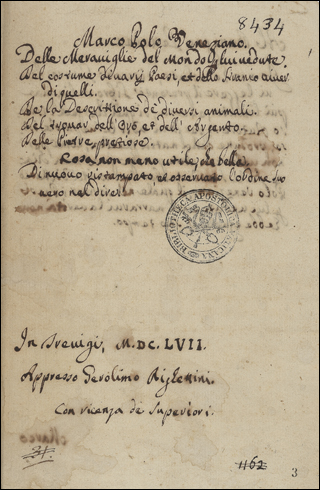 8434
Marco Polo Veneziano.
Delle Meraviglie del Mondo da lui vedute.
Del costume di varij Paesi, et dello
di quelli.
De la Descrittione de diversi animali.
Del trovar dell'Oro, et dell'Argento.
Delle Pietre pretiose.
Rosa non meno utile, che bella.
Di nuovo ristampato et osservato l'ordine suo
vero nel dire.
BIBLIOTHECA APOSTOLICA VATICANA
In Trevigi, M.DC.LVII.
Appresso Gerolimo Righettini.
Con licenza de Superiori.
1162
3